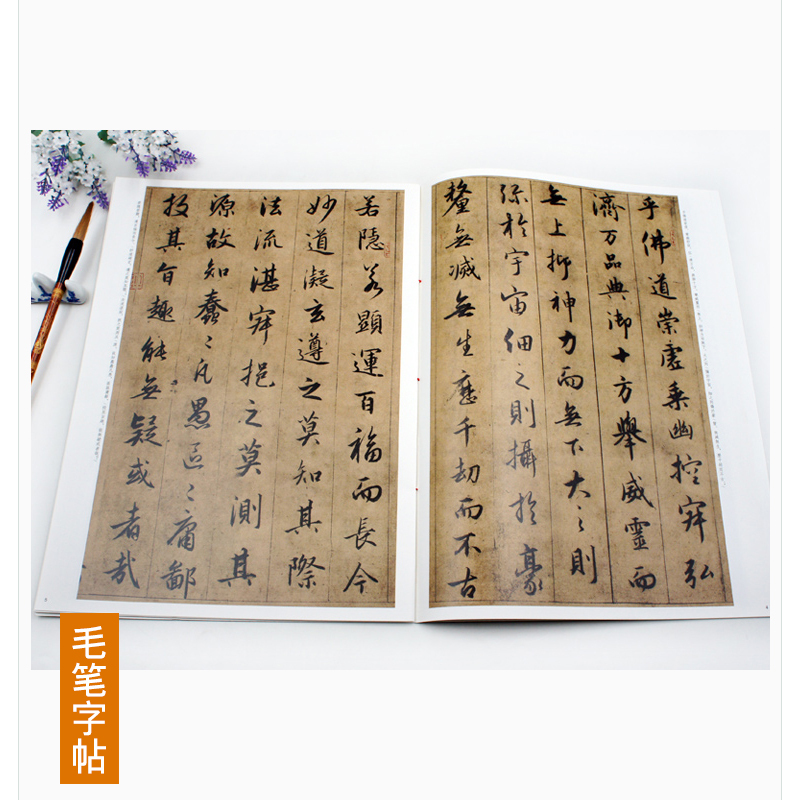 乎佛道崇虛乘幽控寂弘
濟万品典御十方舉威靈而
無上抑神力而無下大之則
弥於宇宙細之則攝於豪
釐無滅無生歷千劫而不古
若隱若顯運百福而長今
妙道凝玄遵之莫知其際
法流湛寂挹之莫測其
源故知蠢〻凡愚區〻庸鄙
投其旨趣能無疑或者哉
毛笔字帖